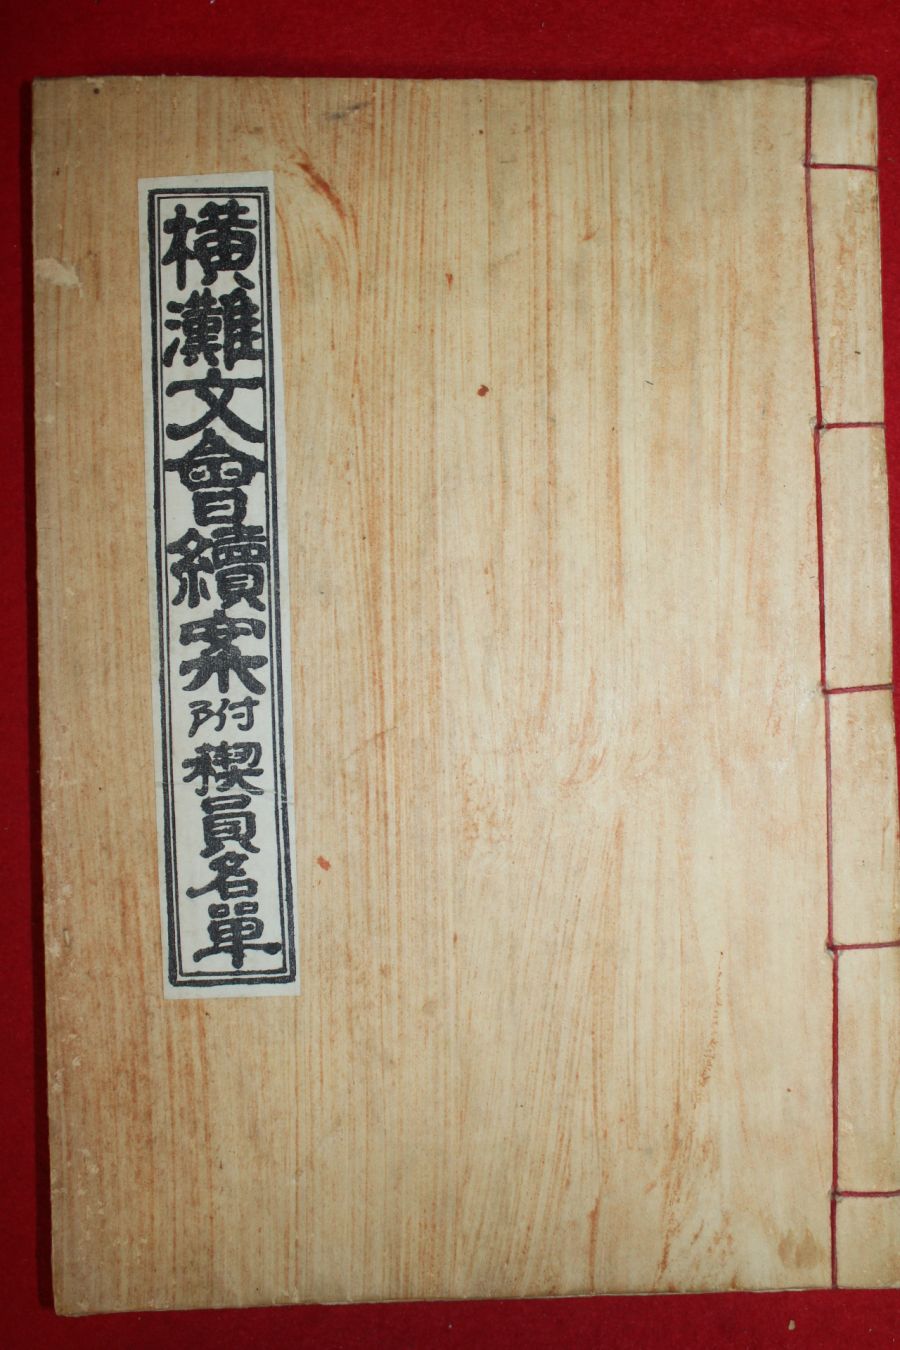 橫灘文會續案附稧員名單